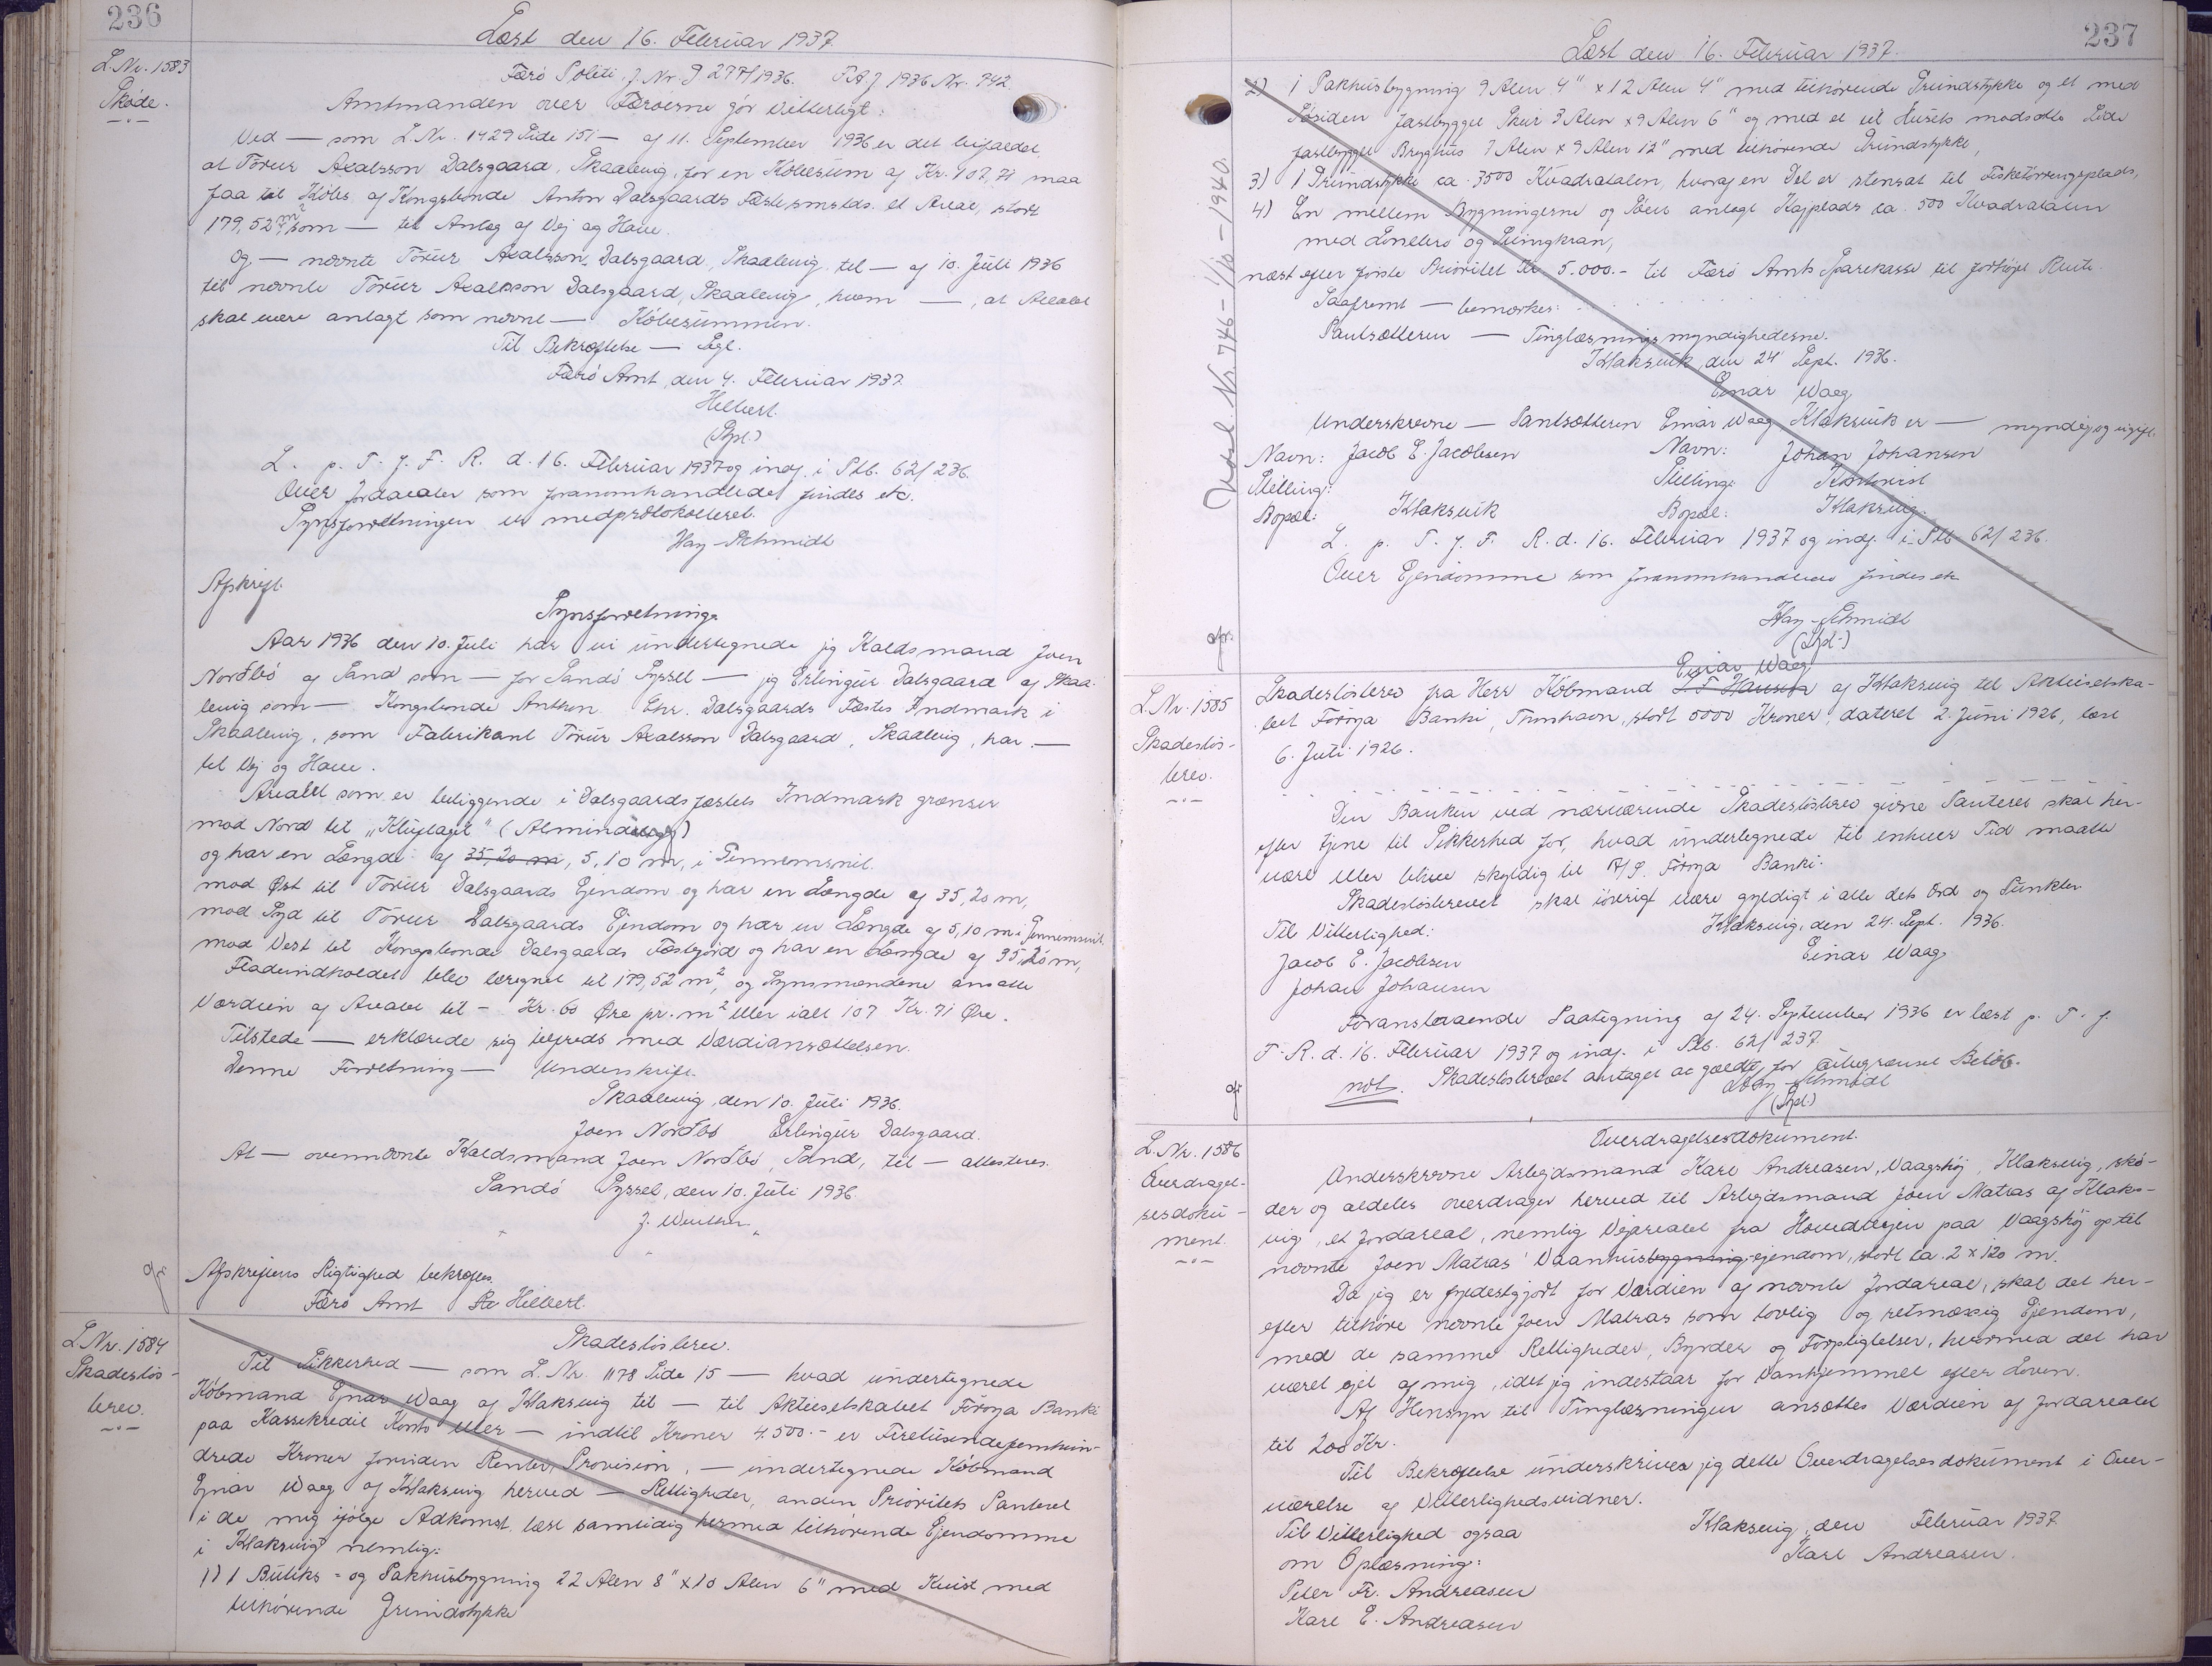 236
Læst den 16. Februar 1937.
L.Nr. 1583
Skøde.
Færø Politi J. Nr. J 277/1936. P.A.J 1936 Nr. 742.
Amtmanden over Færøerne gør vitterligt:
Ved — som L.Nr. 1429 Side 151 — af 11. September 1936 er det bifaldet,
at Tórur Axalsson Dalsgaard, Skaalevig, for en Købesum af Kr. 107,71 maa
faa til Købs af Kongsbonde Anton Dalsgaards Fæste smstds. et Areal, stort
179,52 m², som — til Anlæg af Vej og Have.
og — nævnte Tórur Axalsson Dalsgaard, Skaalevig til — af 10. Juli 1936
til nævnte Tórur Axalsson Dalsgaard, Skaalevig, hvem —, at Arealet
skal være anlagt som nævnt — Købesummen.
Til Bekræftelse — Segl.
Færø Amt, den 4. Februar 1937.
Hilbert.
(Spl.)
L. p. T. f. F. R. d. 16. Februar 1937 og indf. i Skb. 62/236.
Over Jordarealer som foranomhandlede findes etc.
Synsforretningen er medprotokolleret.
Hay-Schmidt
Afskrift.
Synsforretning.
Aar 1936 den 10. Juli har vi undertegnede jeg Kaldsmand Joen
Norðbó af Sand som — for Sandø Syssel — jeg Erlingur Dalsgaard af Skaa-
levig som — Kongsbonde Anthon Chr. Dalsgaards Fæstes Indmark i
Skaalevig, som Fabrikant Tórur Axalsson Dalsgaard, Skaalevig, har —
til Vej og Have.
Arealet som er beliggende i Dalsgaards fæstets Indmark grænser
mod Nord til
og har en Længde af 35,20 m, 5,10 m, i Gennemsnit.
mod Øst til Tórur Dalsgaards Ejendom og har en Længde af 35,20 m,
mod Syd til Tórur Dalsgaards Ejendom og har en Længde af 5,10 m i Gennemsnit,
mod Vest til Kongsbonde Dalsgaards Fæstejord og har en Længde af 35,20 m,
Fladeindholdet blev beregnet til 179,52 m², og Synsmændene ansatte
Værdien af Arealet til — Kr. 60 Øre pr. m² eller ialt 107 Kr. 71 Øre.
Tilstede — erklærede sig tilfreds med Værdiansættelsen.
Denne Forretning — Underskrift.
Skaalevig, den 10. Juli 1936.
Joen Norðbó Erlingur Dalsgaard.
At — ovennævnte Kaldsmand Joen Norðbó, Sand, til — attesteres.
Sandø Syssel, den 10. Juli 1936.
J. Winther
Afskriftens Rigtighed bekræftes.
Færø Amt Hilbert.
L.Nr. 1584
Skadesløs-
brev.
Skadesløsbrev.
Til Sikkerhed — som L.Nr. 1178 Side 15 — hvad undertegnede
Købmand Ejnar Waag af Klaksvig til — til Aktieselskabet Føroya Banki
paa Kassekredit Konto eller — indtil Kroner 4.500.- er Firetusindefemhun-
drede Kroner foruden Renter, Provision, — undertegnede Købmand
Ejnar Waag af Klaksvig herved — Rettigheder, anden Prioritets Panteret
i de mig ifølge Adkomst læst samtidig hermed tilhørende Ejendomme
i Klaksvig nemlig:
1) 1 Butiks- og Pakhusbygning 22 Alen 8" x 10 Alen 6" med Kvist med
tilhørende Grundstykke
237
Læst den 16. Februar 1937.
2) 1 Pakhusbygning 9 Alen 4" x 12 Alen 4" med tilhørende Grundstykke og et med
Søsiden fastbygget Skur 3 Alen x 9 Alen 6" og med et til Husets modsatte Side
fastbygget Bryghus 7 Alen x 9 Alen 12" med tilhørende Grundstykke,
3) 1 Grundstykke ca. 3500 Kvadratalen, hvoraf en Del er stensat til Fisketørringsplads,
4) En mellem Bygningerne og Søen anlagt Kajplads ca. 500 Kvadratalen
med Landbro og Svingkran,
næst efter første Prioritet Kr. 5.000.- til Færø Amts Sparekasse til forhøjet Rente.
Saafremt — bemærkes:
Pantsætteren — Tinglæsningsmyndighederne.
Klaksvik, den 24 Sept. 1936.
Einar Waag
Underskrevne — Pantsætteren Einar Waag Klaksvik er — myndig og ugift.
Navn: Jacob E. Jacobsen Navn: Johan Johansen
Stilling: Stilling: Kontorist
Bopæl: Klaksvik Bopæl: Klaksvig.
L. p. T. f. F. R. d. 16. Februar 1937 og indf. i Skb 62/236.
Over Ejendomme som foranomhandlede findes etc
Hay-Schmidt
(Spl.)
Nr. 746 - 1/10 - 1940.
L.Nr. 1585
Skadesløs-
brev.
Einar Waag
Skadesløsbrev fra Herr Købmand af Klaksvig til Aktieselska-
bet Føroya Banki, Thorshavn, stort 5000 Kroner, dateret 2. Juni 1926, læst
6. Juli 1926.
Den Banken ved nærværende Skadesløsbrev givne Panteret skal her-
efter tjene til Sikkerhed for, hvad undertegnede til enhver Tid maatte
være eller blive skyldig til A/S. Føroya Banki.
Skadesløsbrevet skal iøvrigt være gyldigt i alle dets Ord og Punkter
Til Vitterlighed: Klaksvig, den 24. Sept. 1936.
Jacob E. Jacobsen Einar Waag
Johan Johansen
Foranstaaende Paategning af 24. September 1936 er læst p. T. f.
F. R. d. 16. Februar 1937 og indf. i Skb. 62/237.
not. Skadesløsbrevet antaget at gælde for ubegrænset Beløb.
Hay-Schmidt
(Spl.)
L.Nr. 1586
Overdragel-
sesdoku-
ment.
Overdragelsesdokument.
Underskrevne Arbejdsmand Karl Andreasen, Vaagshøj, Klaksvig, skø-
der og aldeles overdrager herved til Arbejdsmand Joen Matras af Klaks-
vig, et Jordareal, nemlig Vejarealet fra Hovedvejen paa Vaagshøj op til
nævnte Joen Matras' Vaanhusbygning-ejendom, stort ca. 2 x 120 m.
Da jeg er fyldestgjort for Værdien af nævnte Jordareal, skal det her-
efter tilhøre nævnte Joen Matras som lovlig og retmæssig Ejendom,
med de samme Rettigheder, Byrder og Forpligtelser, hvormed det har
været ejet af mig, idet jeg indestaar for Vanhjemmel efter Loven.
Af Hensyn til Tinglæsningen ansættes Værdien af Jordarealet
til 200 Kr.
Til Bekræftelse underskriver jeg dette Overdragelsesdokument i Over-
værelse af Vitterlighedsvidner.
Til Vitterlighed ogsaa Klaksvig, den Februar 1937
om Oplæsning: Karl Andreasen.
Peter Fr. Andreasen
Karl E. Andreasen